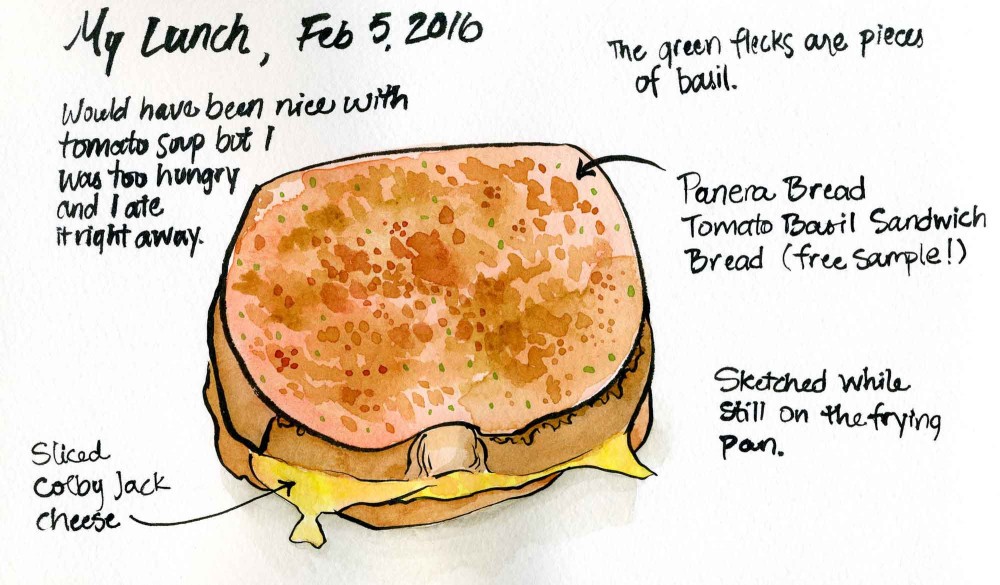 My Lunch, Feb 5, 2016
The green flecks are pieces
of basil.
Would have been nice with
tomato soup but I
was too hungry
and I ate
it right away.
Panera Bread
Tomato Basil Sandwich
Bread (free sample!)
Sketched while
still on the frying
pan.
Sliced
Colby Jack
cheese